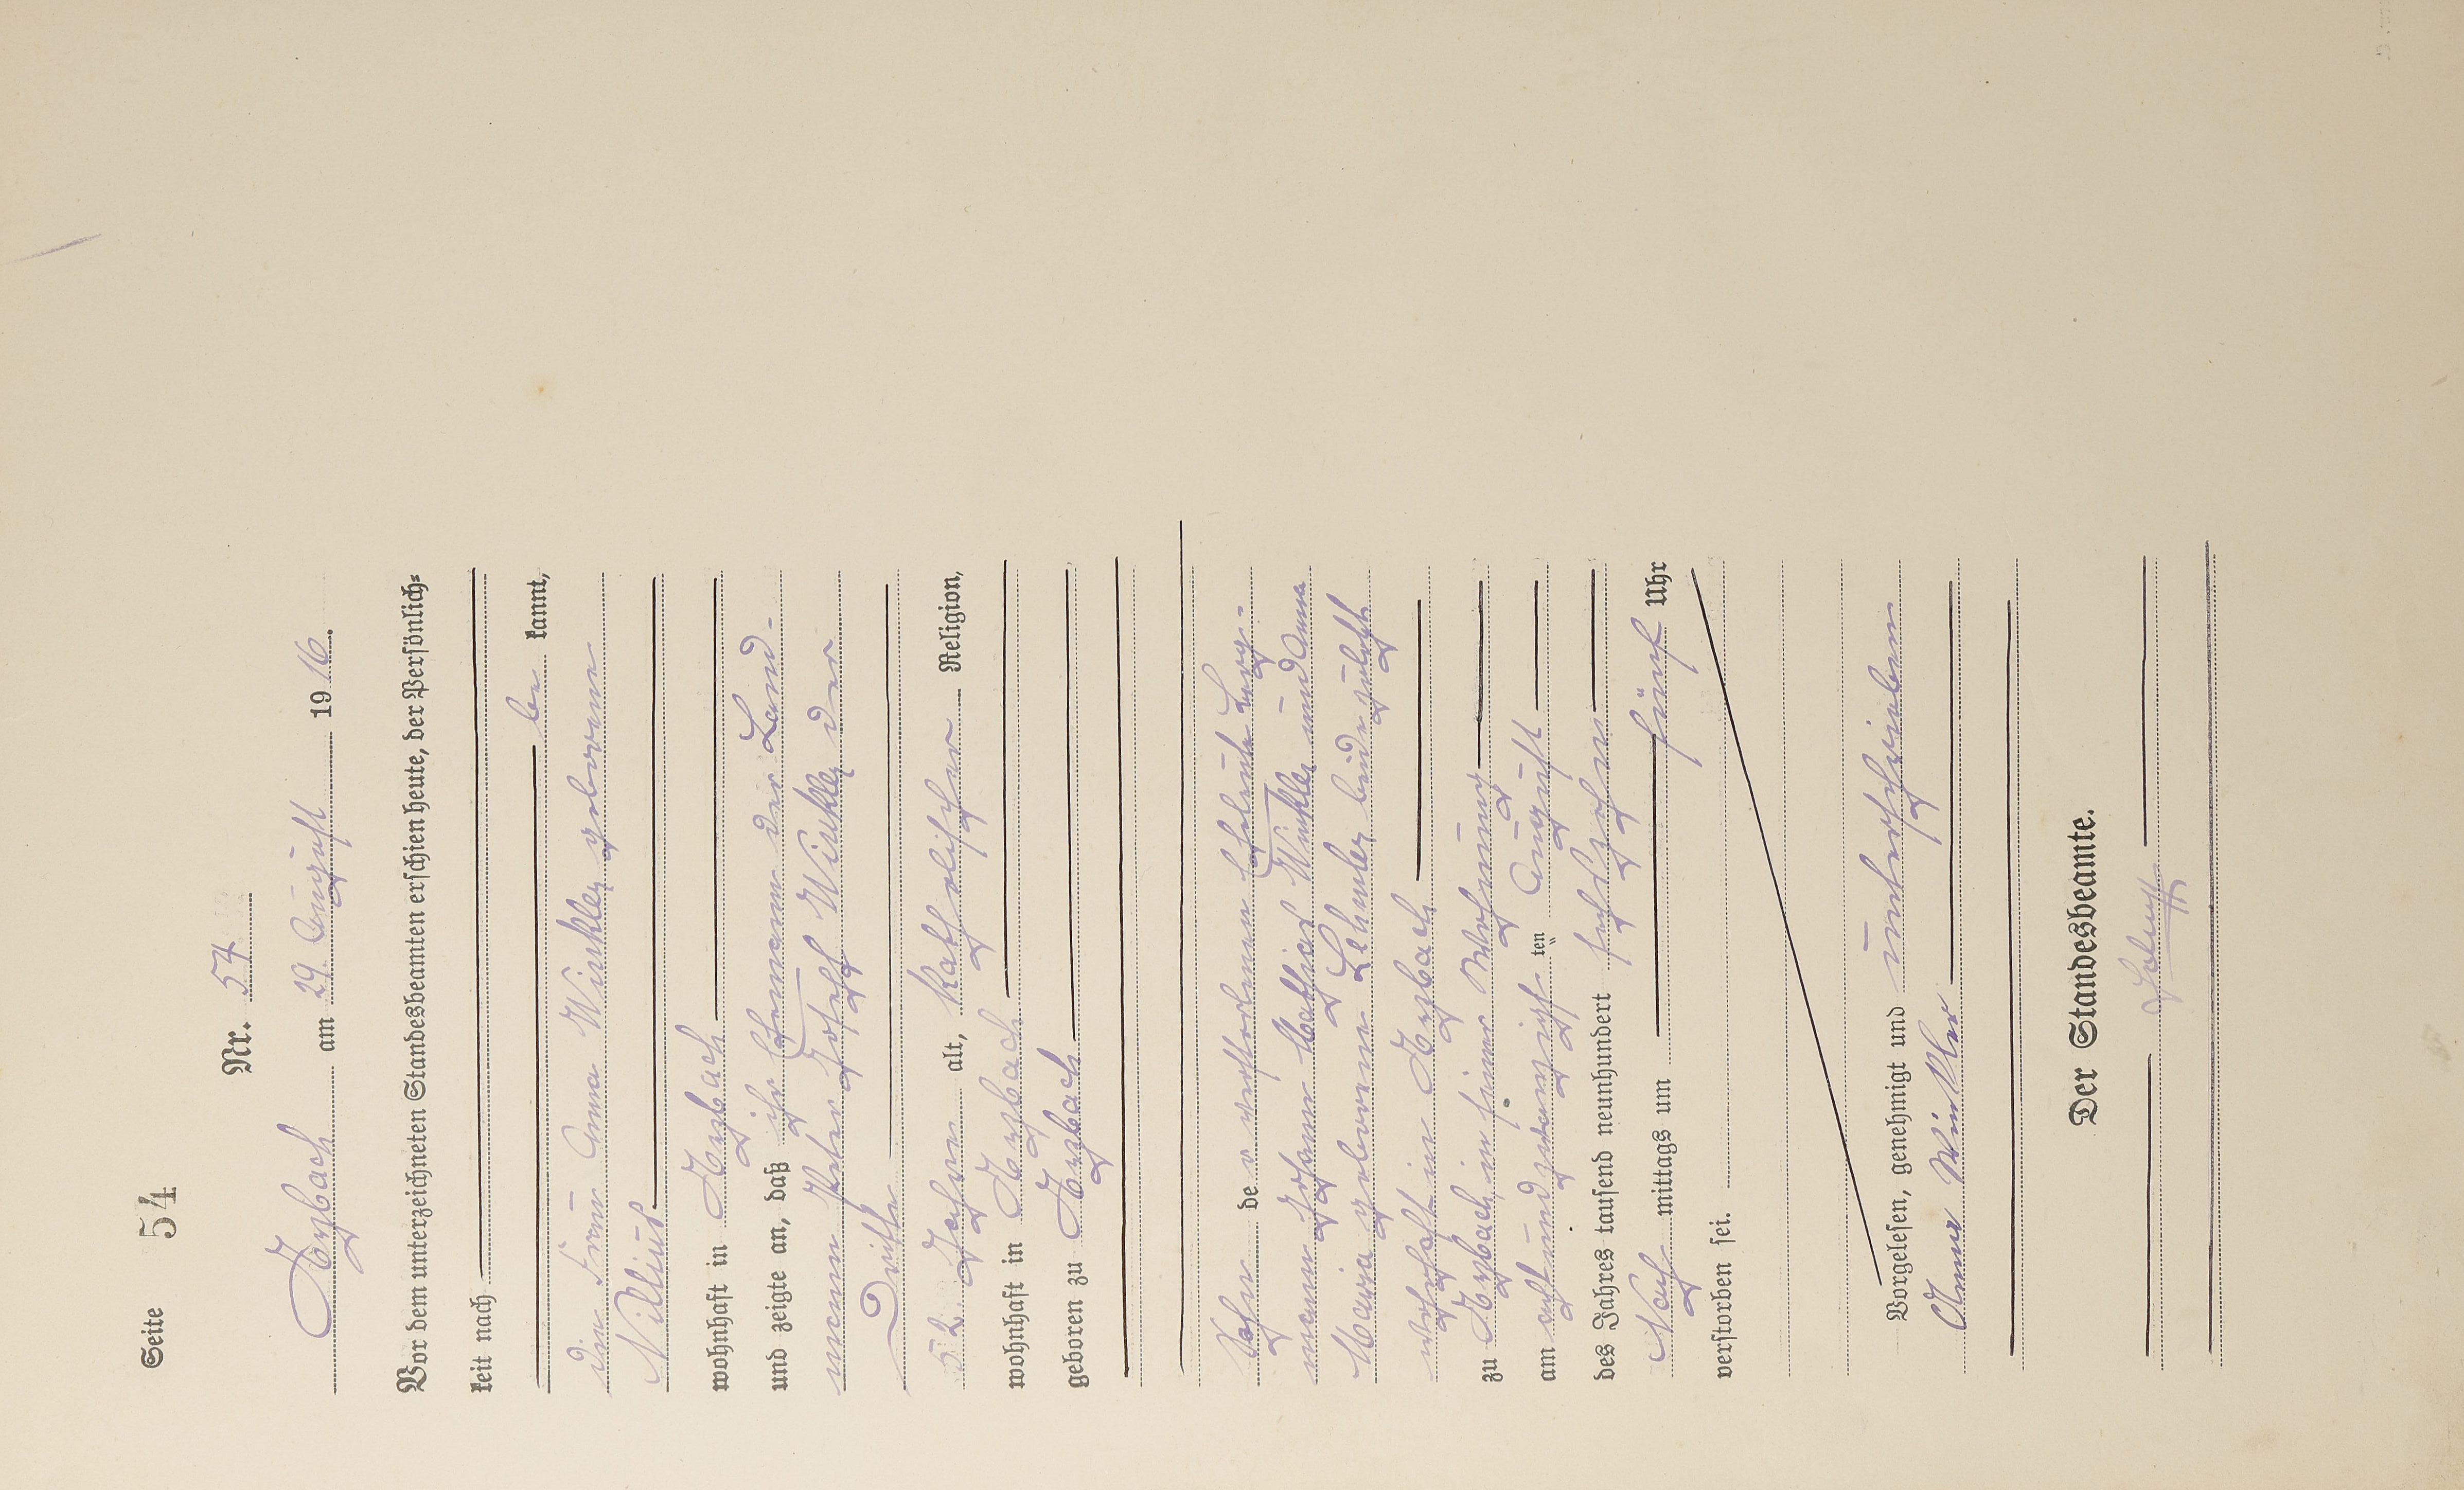 Seite 54
Nr. 54
Asbach am 29. August 1916.
Vor dem unterzeichneten Standesbeamten erschien heute, der Persönlich=
keit nach
be kannt,
die Frau Anna Winkler geborene
wohnhaft in Asbach
und zeigte an, daß ihr Ehemann der Land-
mann Peter Josef Winkler der
Dritte
52 Jahre alt, katholischer Religion,
wohnhaft in Asbach
geboren zu Asbach
Sohn de r verstorbenen Eheleute
mann Johann Mathias Winkler und Anna
Maria geborene beide zuletzt
wohnhaft in Asbach
zu Asbach in seiner Wohnung
am achtundzwanzigsten August
des Jahres tausend neunhundert sechszehn
Nach mittags um fünf Uhr
verstorben sei.
Vorgelesen, genehmigt und unterschrieben
Anna Winkler
Der Standesbeamte.